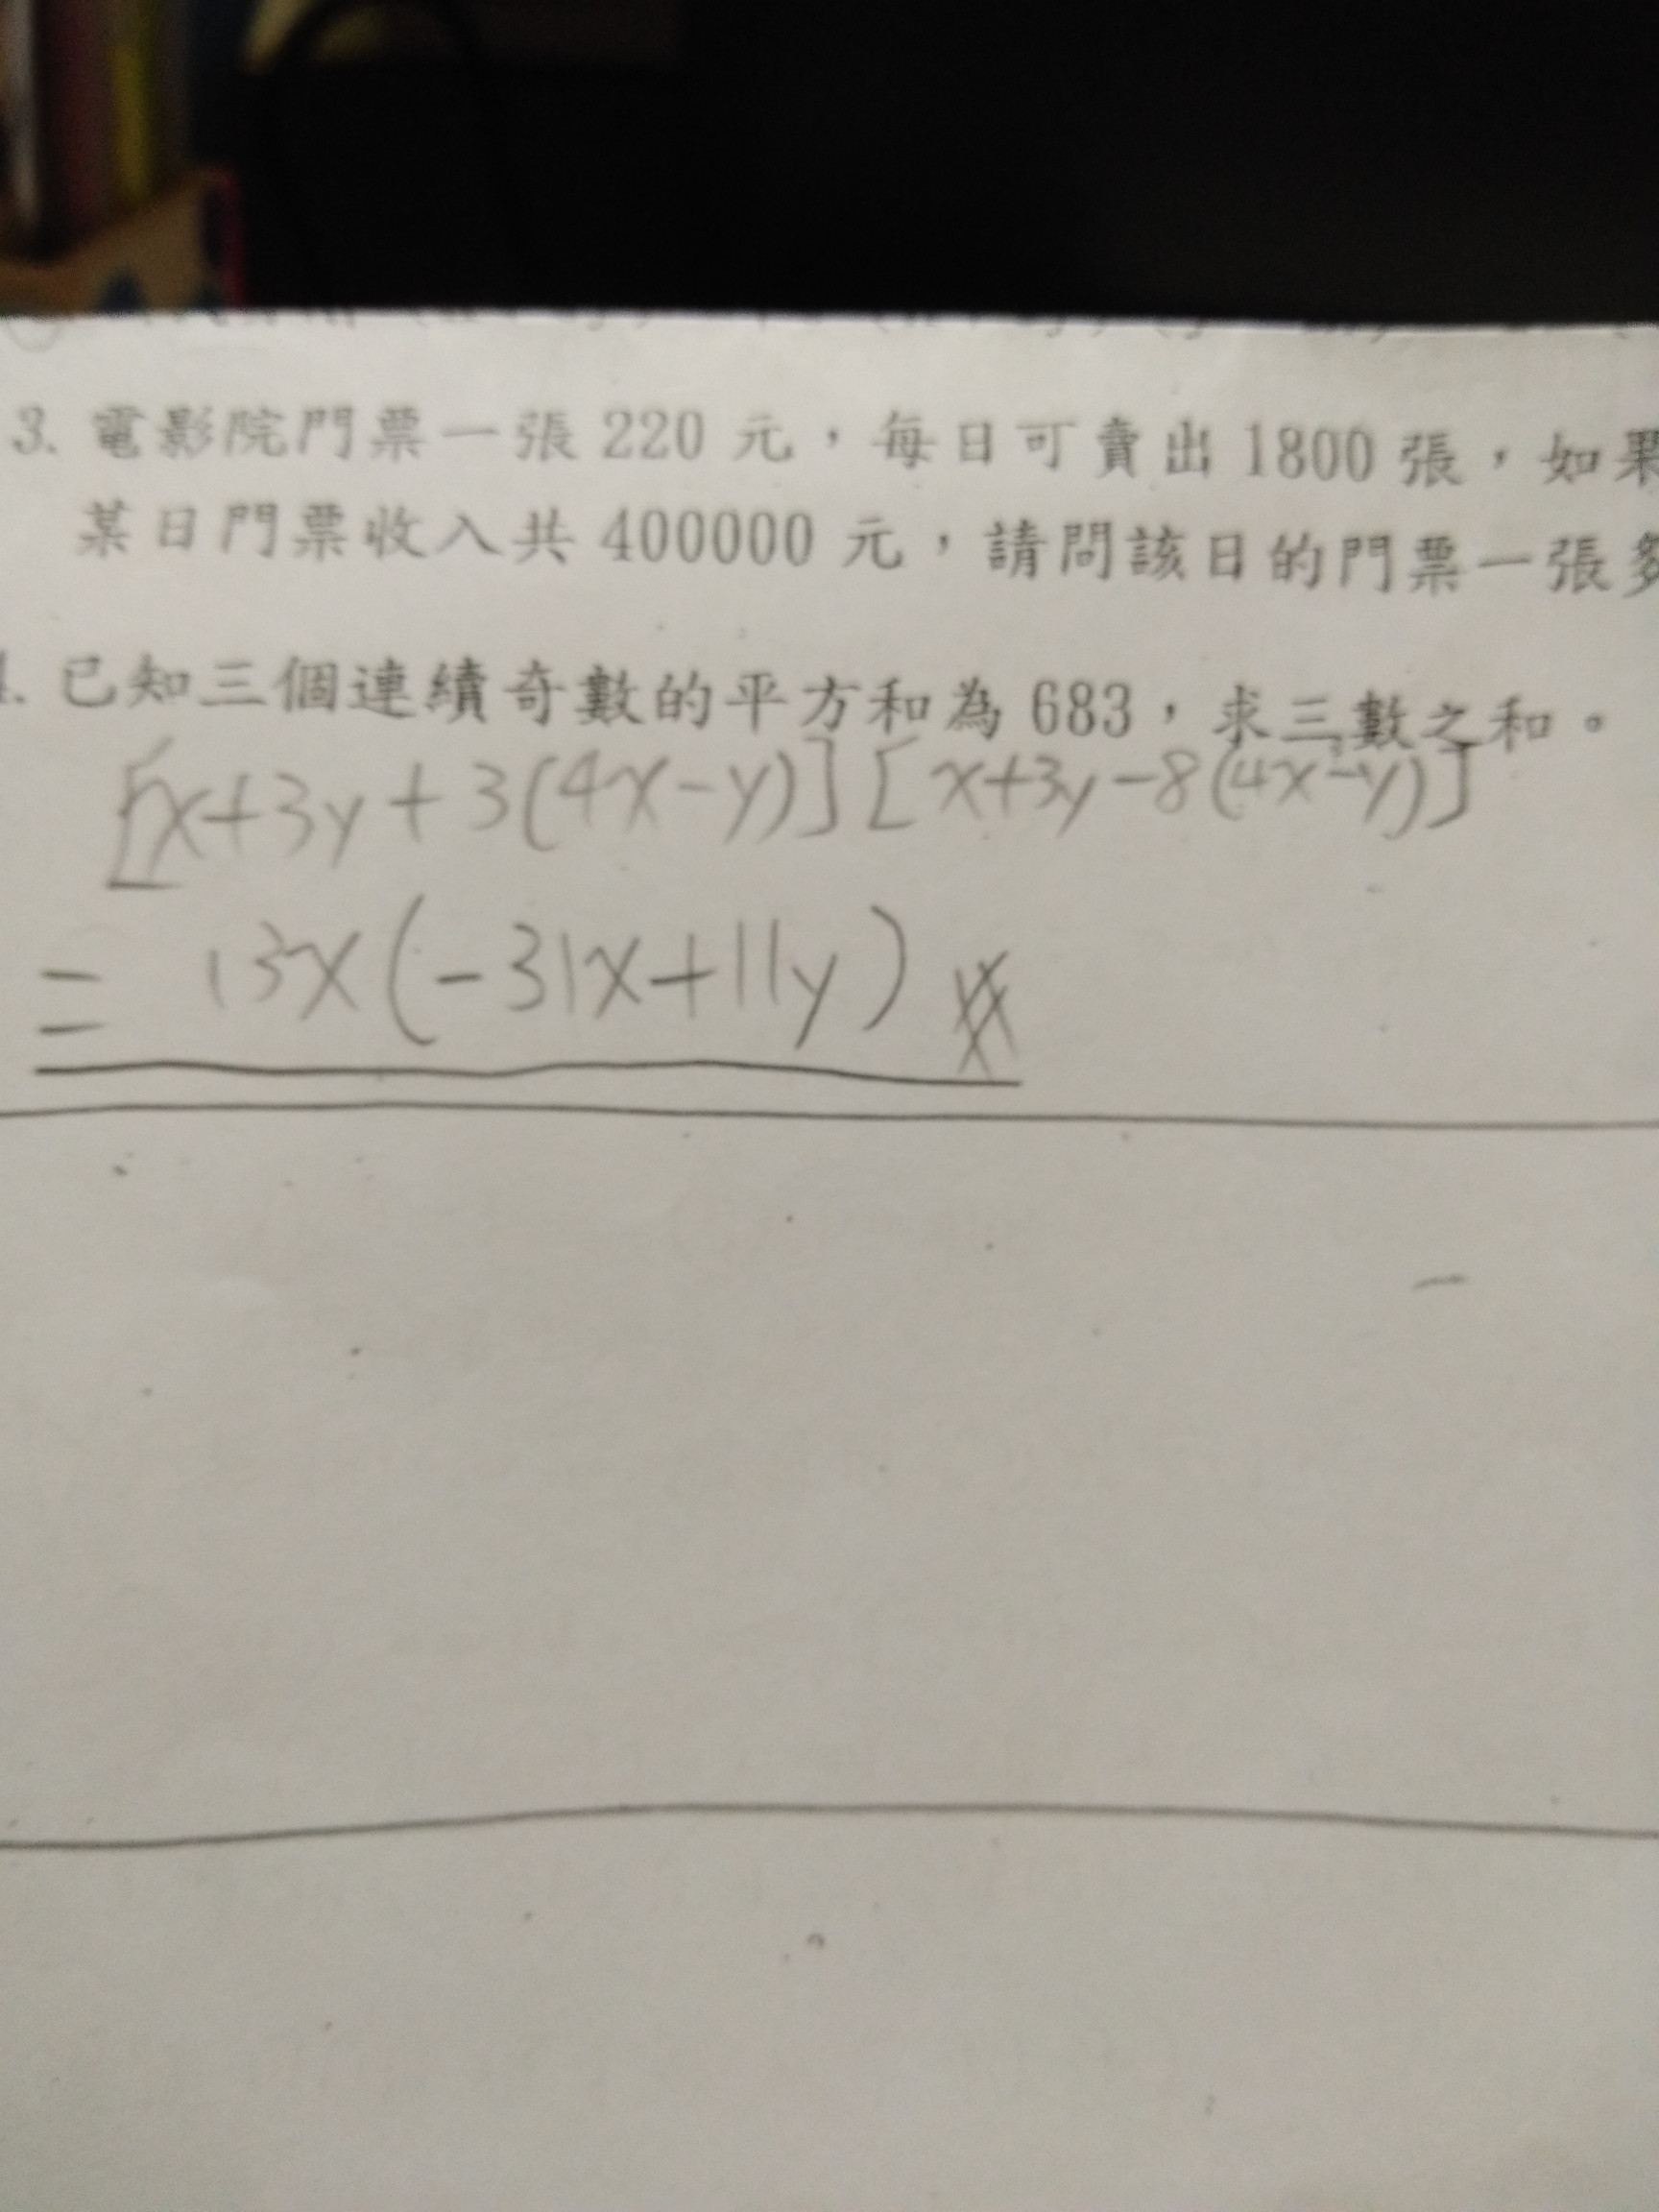 3. 電影院門票一張 220 元，每日可賣出 1800 張，如果
某日門票收入共 400000 元，請問該日的門票一張
4. 已知三個連續奇數的平方和為 683，求三數之和。
[x+3y+3(4x-y)][x+3y-8(4x-y)]
= 13x(-31x+11y)